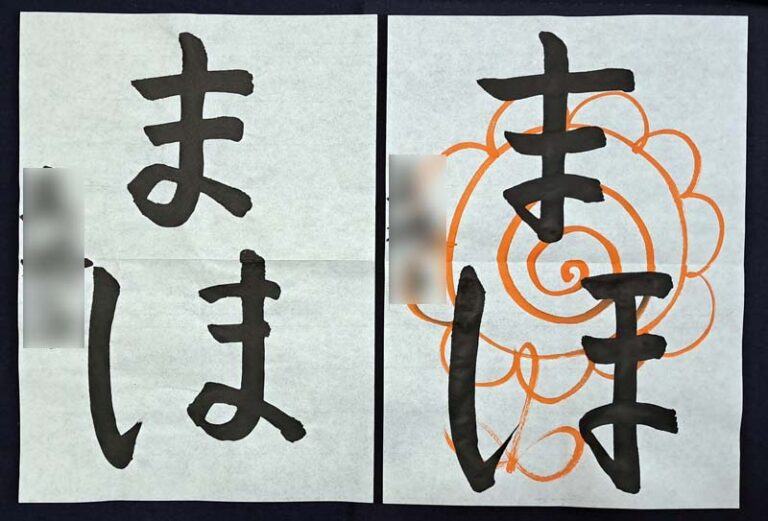 まほ
まほ